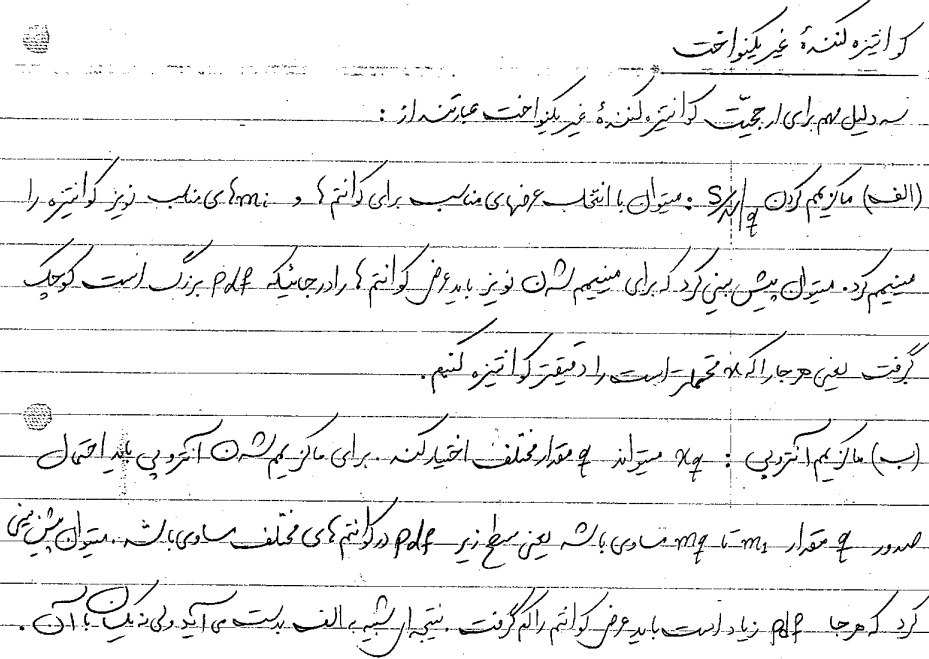 کوانتیزه کنندهٔ غیر یکنواخت
سه دلیل مهم برای ارجحیّت کوانتیزه کنندهٔ غیر یکنواخت عبارتند از :
(الف) ماکزیمم کردن S/N|q : میتوان با انتخاب عرضهای مناسب برای کوانتم ها و mi های مناسب نویز کوانتیزه را
مینیمم کرد. میتوان پیش بینی کرد که برای مینیمم شدن نویز باید عرض کوانتم ها را در جائیکه pdf بزرگ است کوچک
گرفت یعنی هر جا را که x محتملتر است را دقیقتر کوانتیزه کنیم.
(ب) ماکزیمم آنتروپی : xq میتواند q مقدار مختلف اختیار کند. برای ماکزیمم شدن آنتروپی باید احتمال
صدور q مقدار m1 تا mq مساوی باشد یعنی سطح زیر pdf در کوانتم های مختلف مساوی باشد. میتوان پیش بینی
کرد که هر جا pdf زیاد است باید عرض کوانتم را کم گرفت. نتیجه ای شبیه به الف بدست می آید ولی نه یکسان با آن.